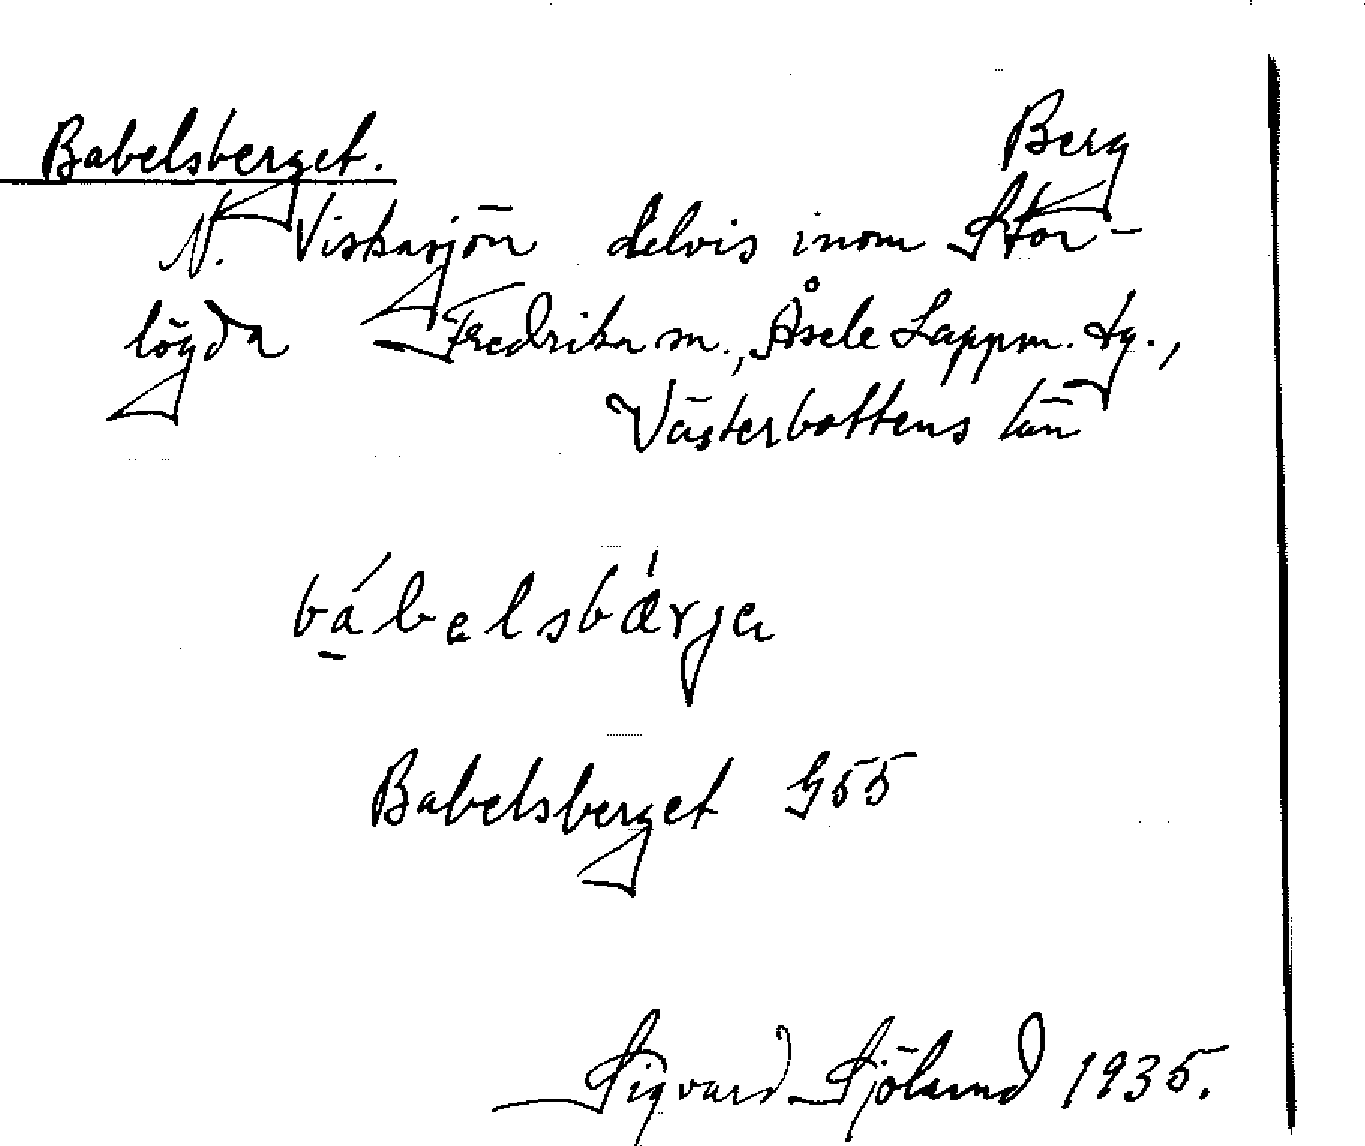 Babelsberget. Berg
N. Viskasjön delvis inom Stor-
lögda Fredrika sn., Åsele Lappm. tg.,
Västerbottens län
bá̱belsbæ̍rja
Babelsberget G55
Sigvard Sjölund 1935.